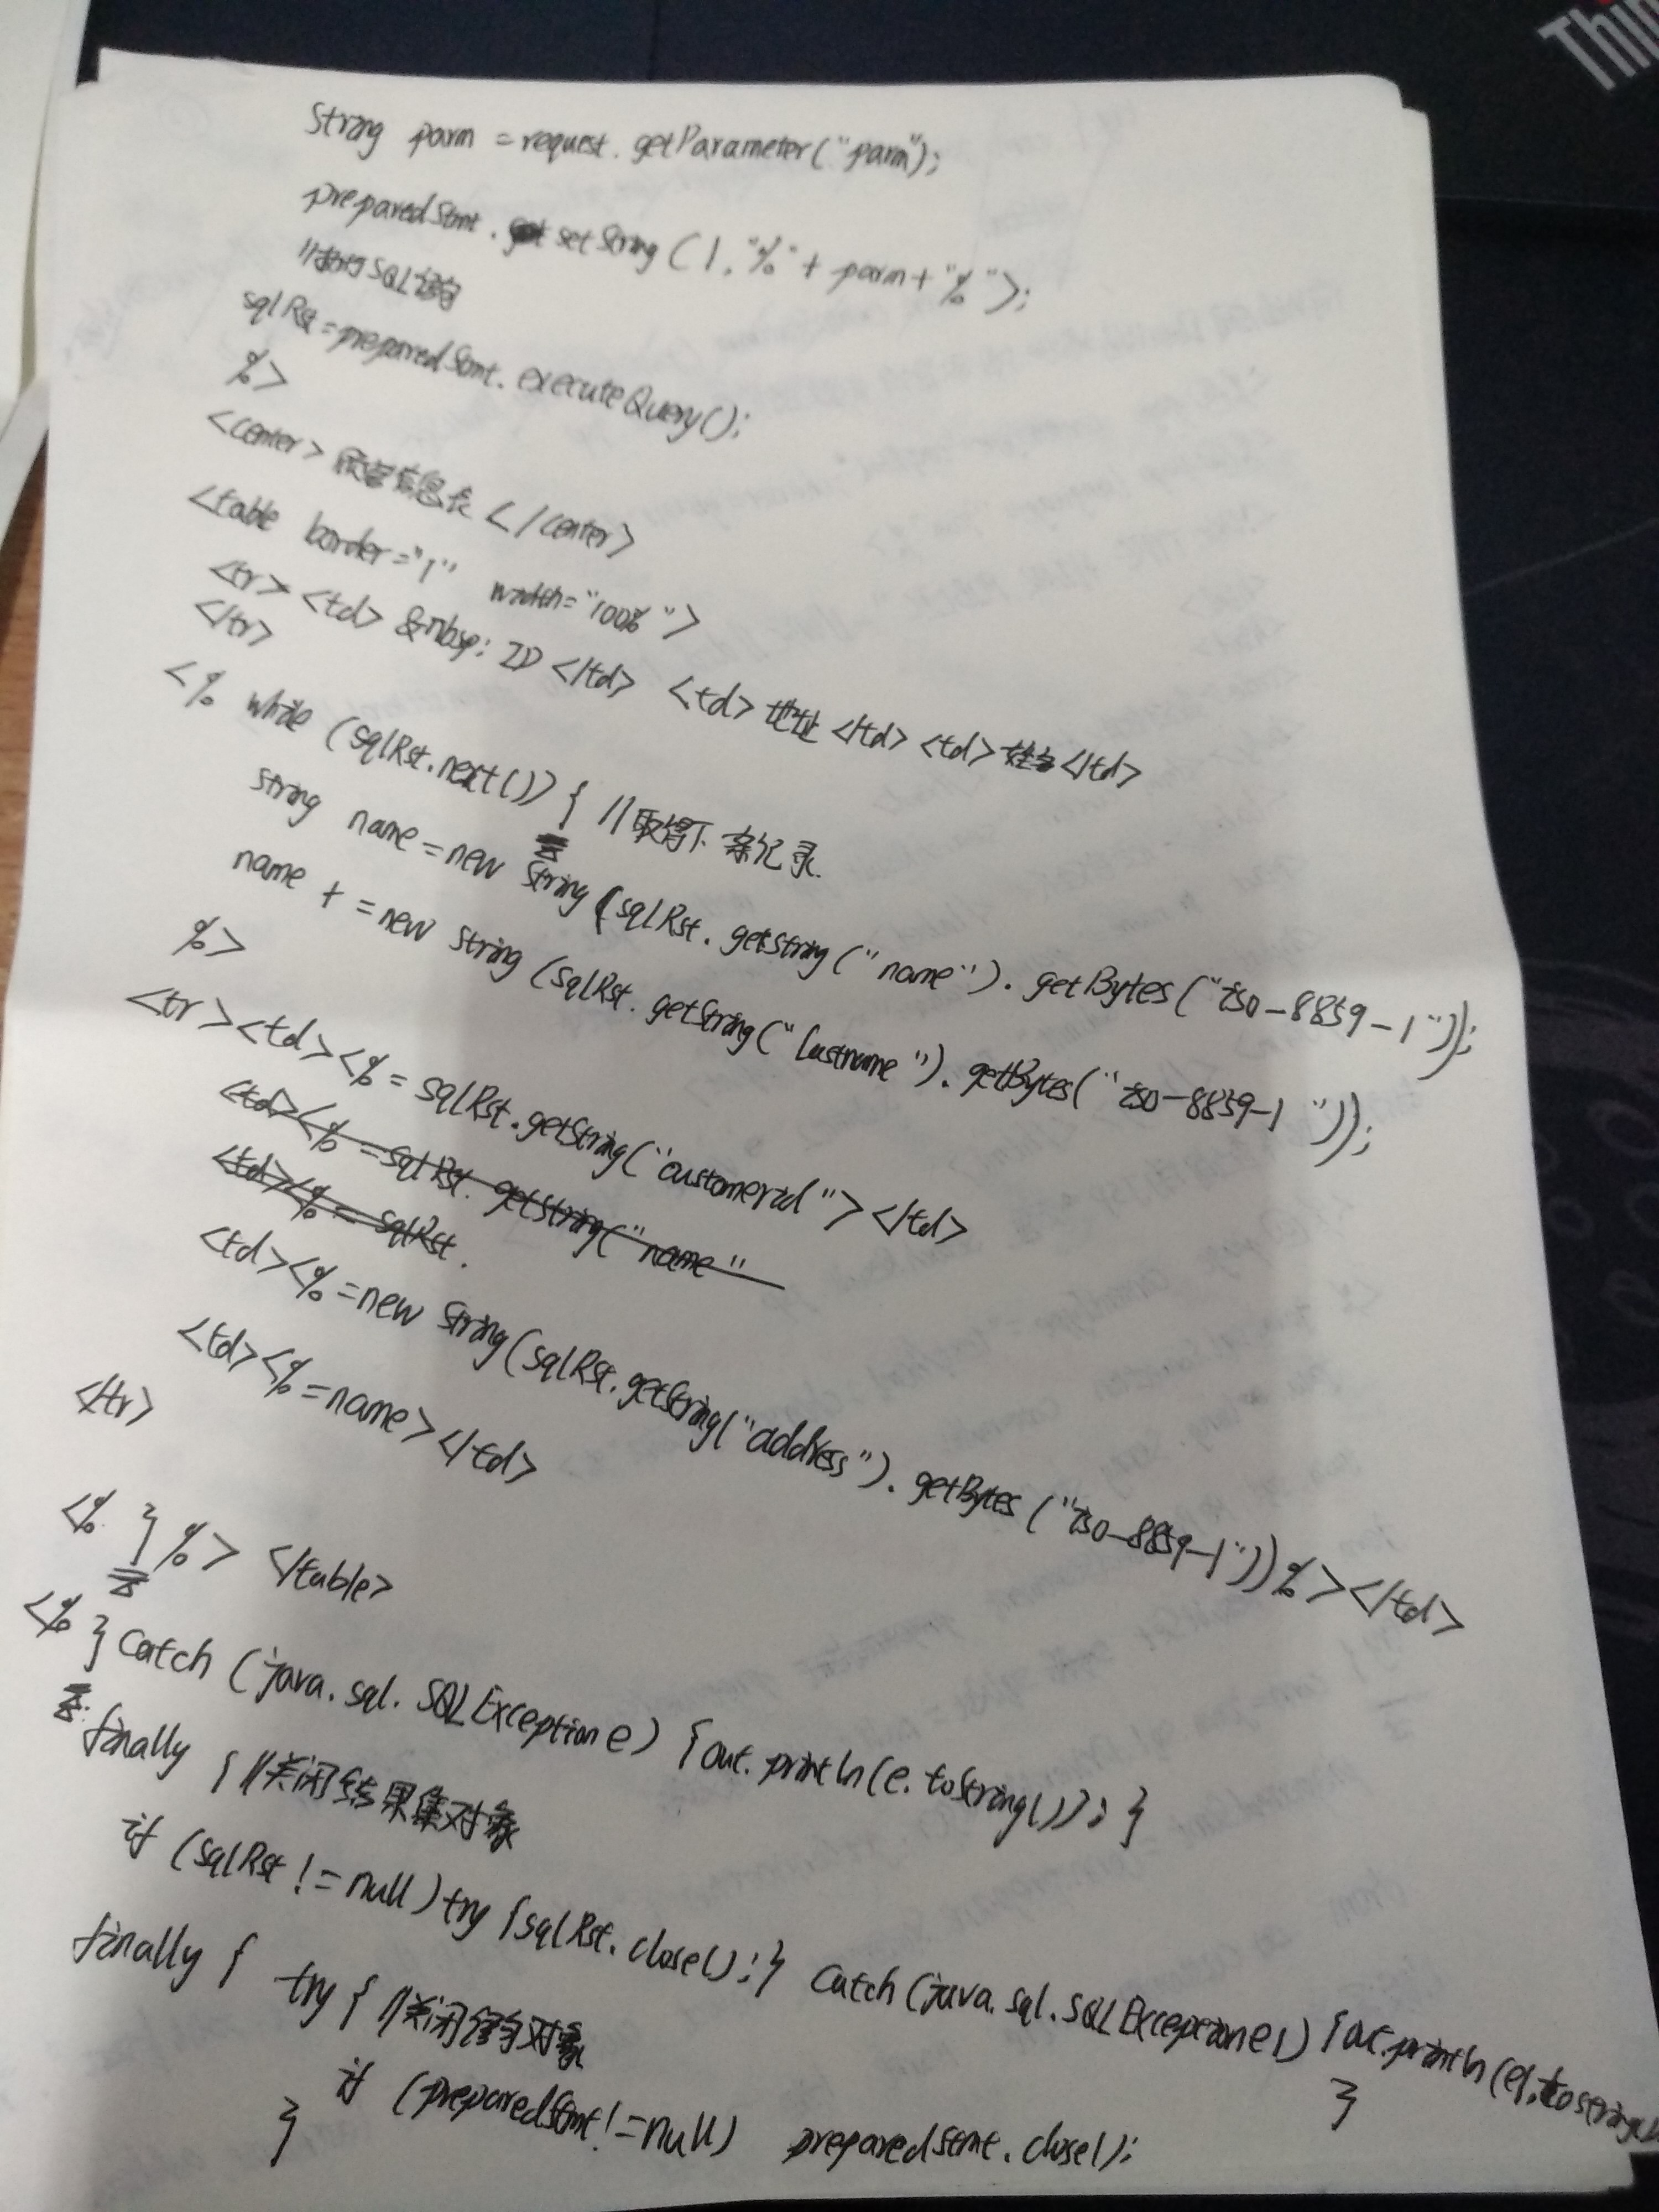 Thin
String parm = request.getParameter("parm");
preparedStmt. setString (1,"%" + parm + "%");
//执行SQL语句
sqlRst = preparedStmt.executeQuery();
%>
<center> 顾客信息表 </center>
<table border="1" width="100%">
<tr> <td> &nbsp; ID </td> <td> 地址 </td> <td> 姓名 </td>
</tr>
<% while (sqlRst.next()) { //取得下一条记录.
String name = new String (sqlRst.getString("name").getBytes("iso-8859-1"));
name + = new String (sqlRst.getString("lastname").getBytes("iso-8859-1"));
%>
<tr><td><%= sqlRst.getString("customerid"></td>
<td><%=sqlRst.getString("name"
<td><%= sqlRst.
<td><%=new String(sqlRst.getString("address").getBytes("iso-8859-1"))%></td>
<td><%=name></td>
</tr>
<% } %> </table>
<% } catch (java.sql.SQLException e) {out.println(e.toString()); }
finally { //关闭结果集对象
if (sqlRst != null) try {sqlRst.close();} catch (java.sql.SQLException e1) {out.println(e1.toString(
finally { try { //关闭语句对象 }
if (preparedStmt != null) preparedStmt.close();
}